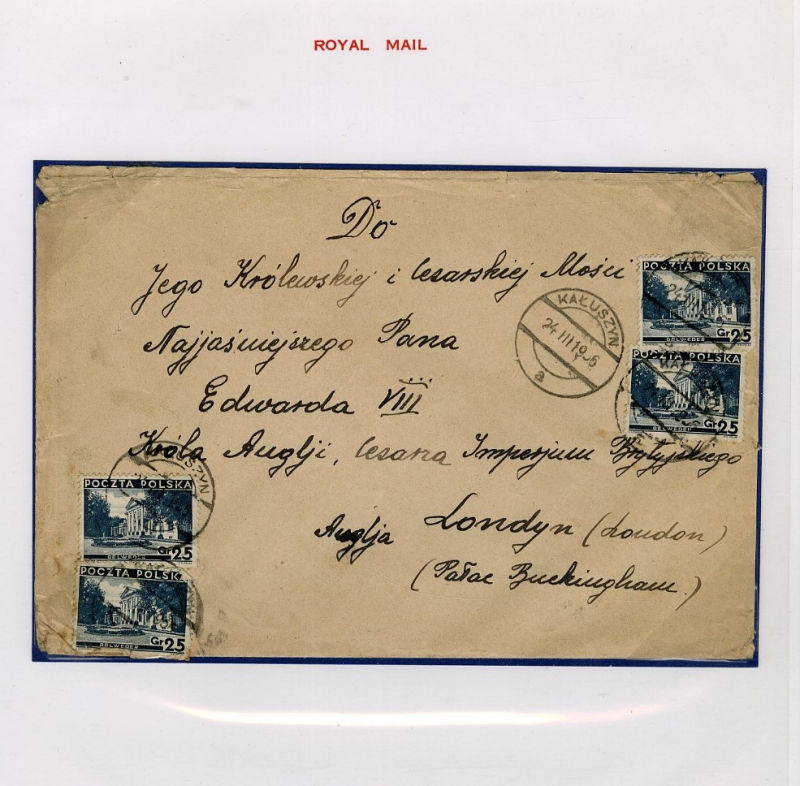 ROYAL MAIL
Do
Jego Królewskiej i Cesarskiej Mości
Najjaśniejszego Pana
Edwarda VIII
Króla Anglji, Cesarza Imperjum Brytyjskiego
Anglja Londyn (London)
(Pałac Buckingham.)
KAŁUSZYN
24 III 1936
a
POCZTA POLSKA
Gr 25
BELWEDER
POCZTA POLSKA
KAŁUSZYN
Gr 25
BELWEDER
KAŁUSZYN
POCZTA POLSKA
Gr 25
BELWEDER
POCZTA POLSKA
Gr 25
BELWEDER